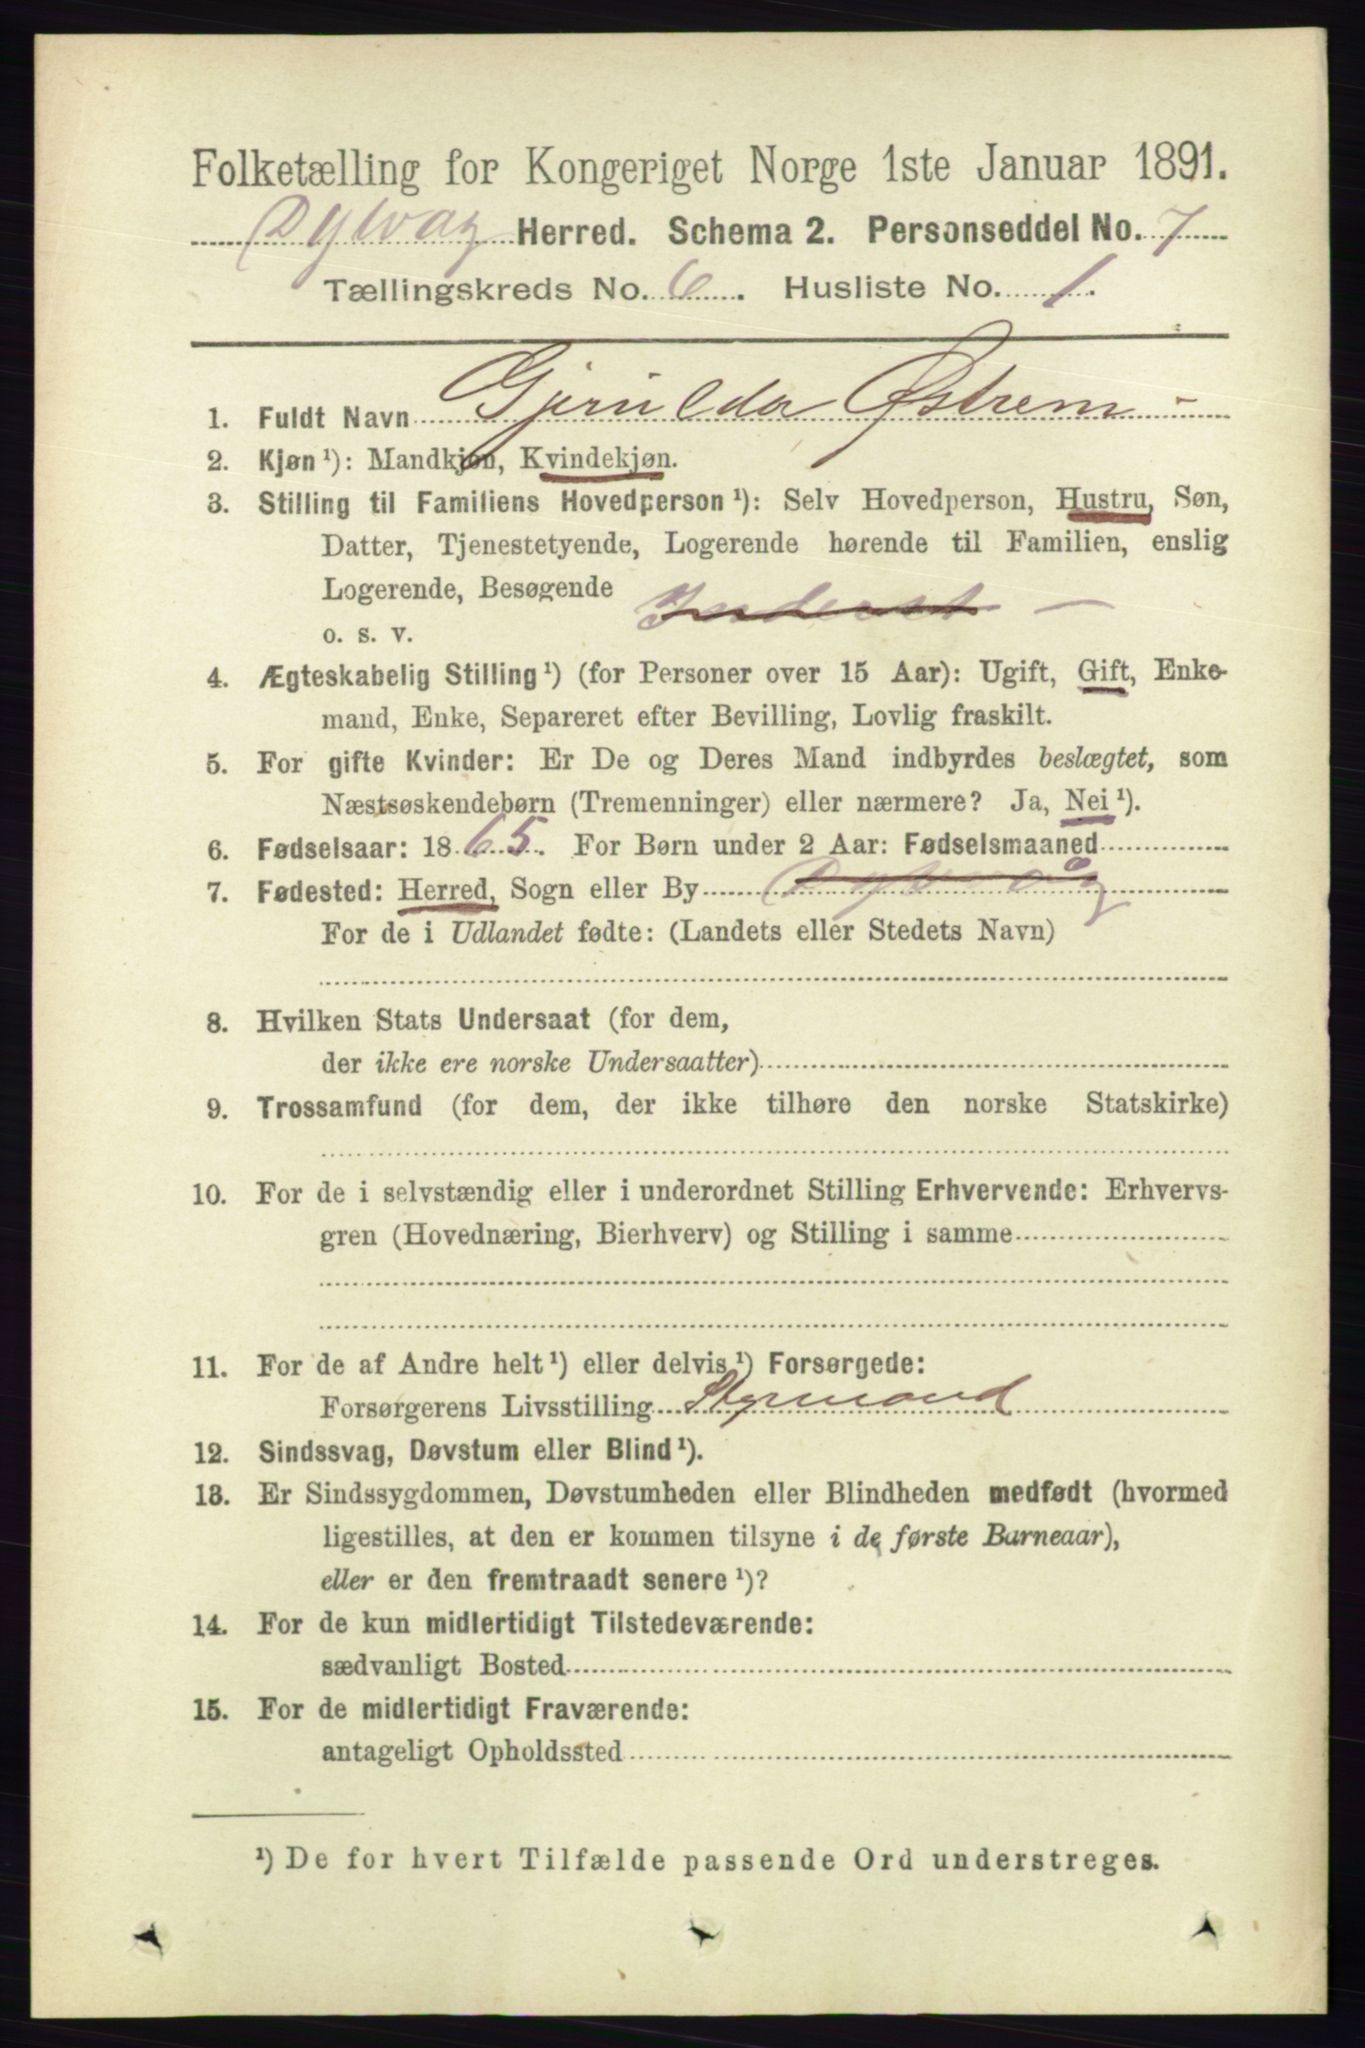 Folketælling for Kongeriget Norge 1ste Januar 1891.
Dybvag Herred. Schema 2. Personseddel No. 7
Tællingskreds No. 6. Husliste No. 1.
1. Fuldt Navn Gjerulda Østrem -
2. Kjøn ¹): Mandkjøn, Kvindekjøn.
3. Stilling til Familiens Hovedperson ¹): Selv Hovedperson, Hustru, Søn,
Datter, Tjenestetyende, Logerende hørende til Familien, enslig
Logerende, Besøgende Inderst —
o. s. v.
4. Ægteskabelig Stilling ¹) (for Personer over 15 Aar): Ugift, Gift, Enke-
mand, Enke, Separeret efter Bevilling, Lovlig fraskilt.
5. For gifte Kvinder: Er De og Deres Mand indbyrdes beslægtet, som
Næstsøskendebørn (Tremenninger) eller nærmere? Ja, Nei ¹).
6. Fødselsaar: 1865. For Børn under 2 Aar: Fødselsmaaned
7. Fødested: Herred, Sogn eller By Dybvåg
For de i Udlandet fødte: (Landets eller Stedets Navn)
8. Hvilken Stats Undersaat (for dem,
der ikke ere norske Undersaatter)
9. Trossamfund (for dem, der ikke tilhøre den norske Statskirke)
10. For de i selvstændig eller i underordnet Stilling Erhvervende: Erhvervs-
gren (Hovednæring, Bierhverv) og Stilling i samme
11. For de af Andre helt ¹) eller delvis ¹) Forsørgede:
Forsørgerens Livsstilling Styrmand
12. Sindssvag, Døvstum eller Blind ¹).
13. Er Sindssygdommen, Døvstumheden eller Blindheden medfødt (hvormed
ligestilles, at den er kommen tilsyne i de første Barneaar),
eller er den fremtraadt senere ¹)?
14. For de kun midlertidigt Tilstedeværende:
sædvanligt Bosted
15. For de midlertidigt Fraværende:
antageligt Opholdssted
¹) De for hvert Tilfælde passende Ord understreges.